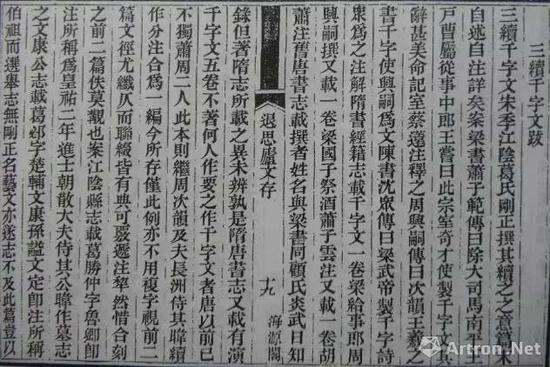 三續千字文跋
三續千字文宋季江陰葛氏剛正撰其續之之意篇末
自述自注詳矣案梁書蕭子範傳曰除大司馬南平王
戶曹屬從事中郎王嘗曰此宗室奇才使製千字文其
辭甚美命記室蔡薳注釋之周興嗣傳曰次韻王羲之
書千字使興嗣爲文陳書沈衆傳曰梁武帝製千字詩
衆爲之注解隋書經籍志載千字文一卷梁給事郎周
興嗣撰又載一卷梁國子祭酒蕭子雲注又載一卷胡
蕭注舊唐書志載撰者姓名與梁書同顧氏炎武日知
退思廬文存
十九
海源閣
錄但著隋志所載之異未辨孰是隋唐書志又載有演
千字文五卷不著何人作要之作千字文者唐以前已
不獨蕭周二人此本則繼周次韻及夫長洲侍其暐續
作分注合爲一編今所存僅此例亦不用複字視前二
篇文徑尤纖仄而聯綴皆有典可覈遞注犂然惜合刻
之前二篇佚莫觀也案江陰縣志載葛勝仲字魯卿卽
注所稱爲皇祐二年進士朝散大夫侍其公暐作墓志
之文康公志載葛郯字楚輔文康孫謚文定卽注所稱
伯祖而選舉志無剛正名藝文亦遂志不及此篇豈以
Artron.Net